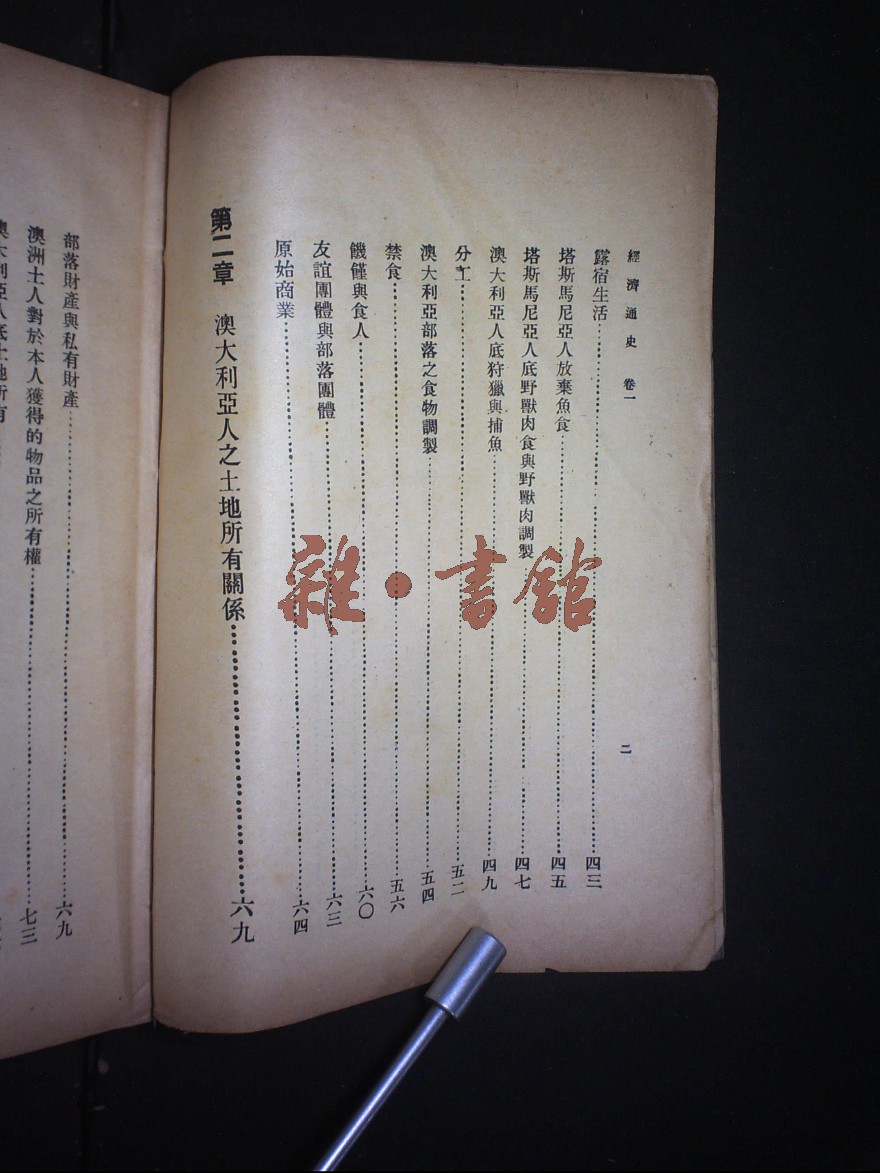 經濟通史 卷一
二
露宿生活……四三
塔斯馬尼亞人放棄魚食……四五
塔斯馬尼亞人底野獸肉食與野獸肉調製……四七
澳大利亞人底狩獵與捕魚……四九
分工……五二
澳大利亞部落之食物調製……五四
禁食……五六
饑饉與食人……六〇
友誼團體與部落團體……六三
原始商業……六四
第二章 澳大利亞人之土地所有關係……六九
部落財產與私有財產……六九
澳洲土人對於本人獲得的物品之所有權……七三
澳大利亞人底土地所有
雜·書館